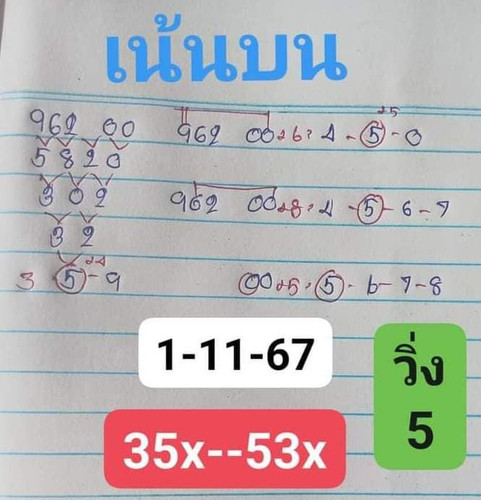 เน้นบน
962 00
5 8 2 0
3 0 2
3 2
3 5 - 9
25
962 00 +6 = 4 - 5 - 0
962 00 +8 = 4 - 5 - 6 - 7
00 +5 = 5 - 6 - 7 - 8
1-11-67
35x--53x
วิ่ง
5